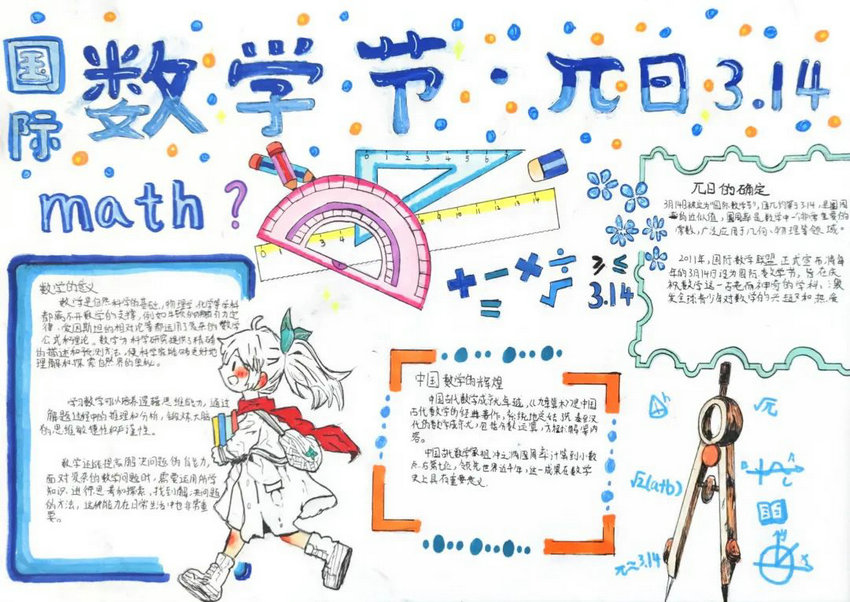 国际
数学节·π日3.14
math?
0 1 2 3 4 5 6 7
π日的确定
3月14日被定为“国际数学节”,
的近似值,圆周率是数学中一个非常重要的
常数,广泛应用于几何、物理等领域。
2011年,国际数学联盟正式宣布,将每
年的3月14日设为国际数学节,旨在庆
祝数学这一古老而神奇的学科,激
发全球青少年对数学的兴趣和热爱
+ - × ÷ = √ ≥ ≤
3.14
数学的意义
数学是自然科学的基础,物理学、化学等学科
都离不开数学的支撑,例如牛顿的万有引力定
律、爱因斯坦的相对论等都运用了复杂的数学
公式和理论。数学为科学研究提供了精确
的描述和预测方法,使科学家能够更好地
理解和探索自然界的奥秘。
学习数学可以培养逻辑思维能力,通过
解题过程中的推理和分析,锻炼大脑
的思维敏捷性和严谨性。
数学还能提高解决问题的能力,
面对复杂的数学问题时,需要运用所学
知识,进行思考和探索,找到解决问题
的方法,这种能力在日常生活中也非常重
要。
中国数学的辉煌
中国古代数学成就光辉,《九章算术》是中国
古代数学的经典著作,系统地总结了战国、秦、汉
代的数学成就,包括分数运算、方程求解等内
容。
中国古代数学家祖冲之将圆周率计算到小数
点后第七位,领先世界近千年,这一成果在数学
史上具有重要意义。
√π
√2(a+b)
π≈3.14